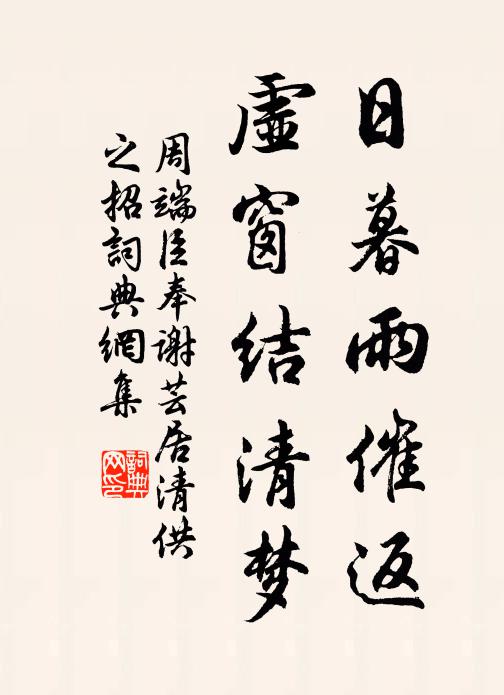 日暮雨催返
虛窗结清梦
周端臣奉謝芸居清供
之招詞典網集
詞典
网印